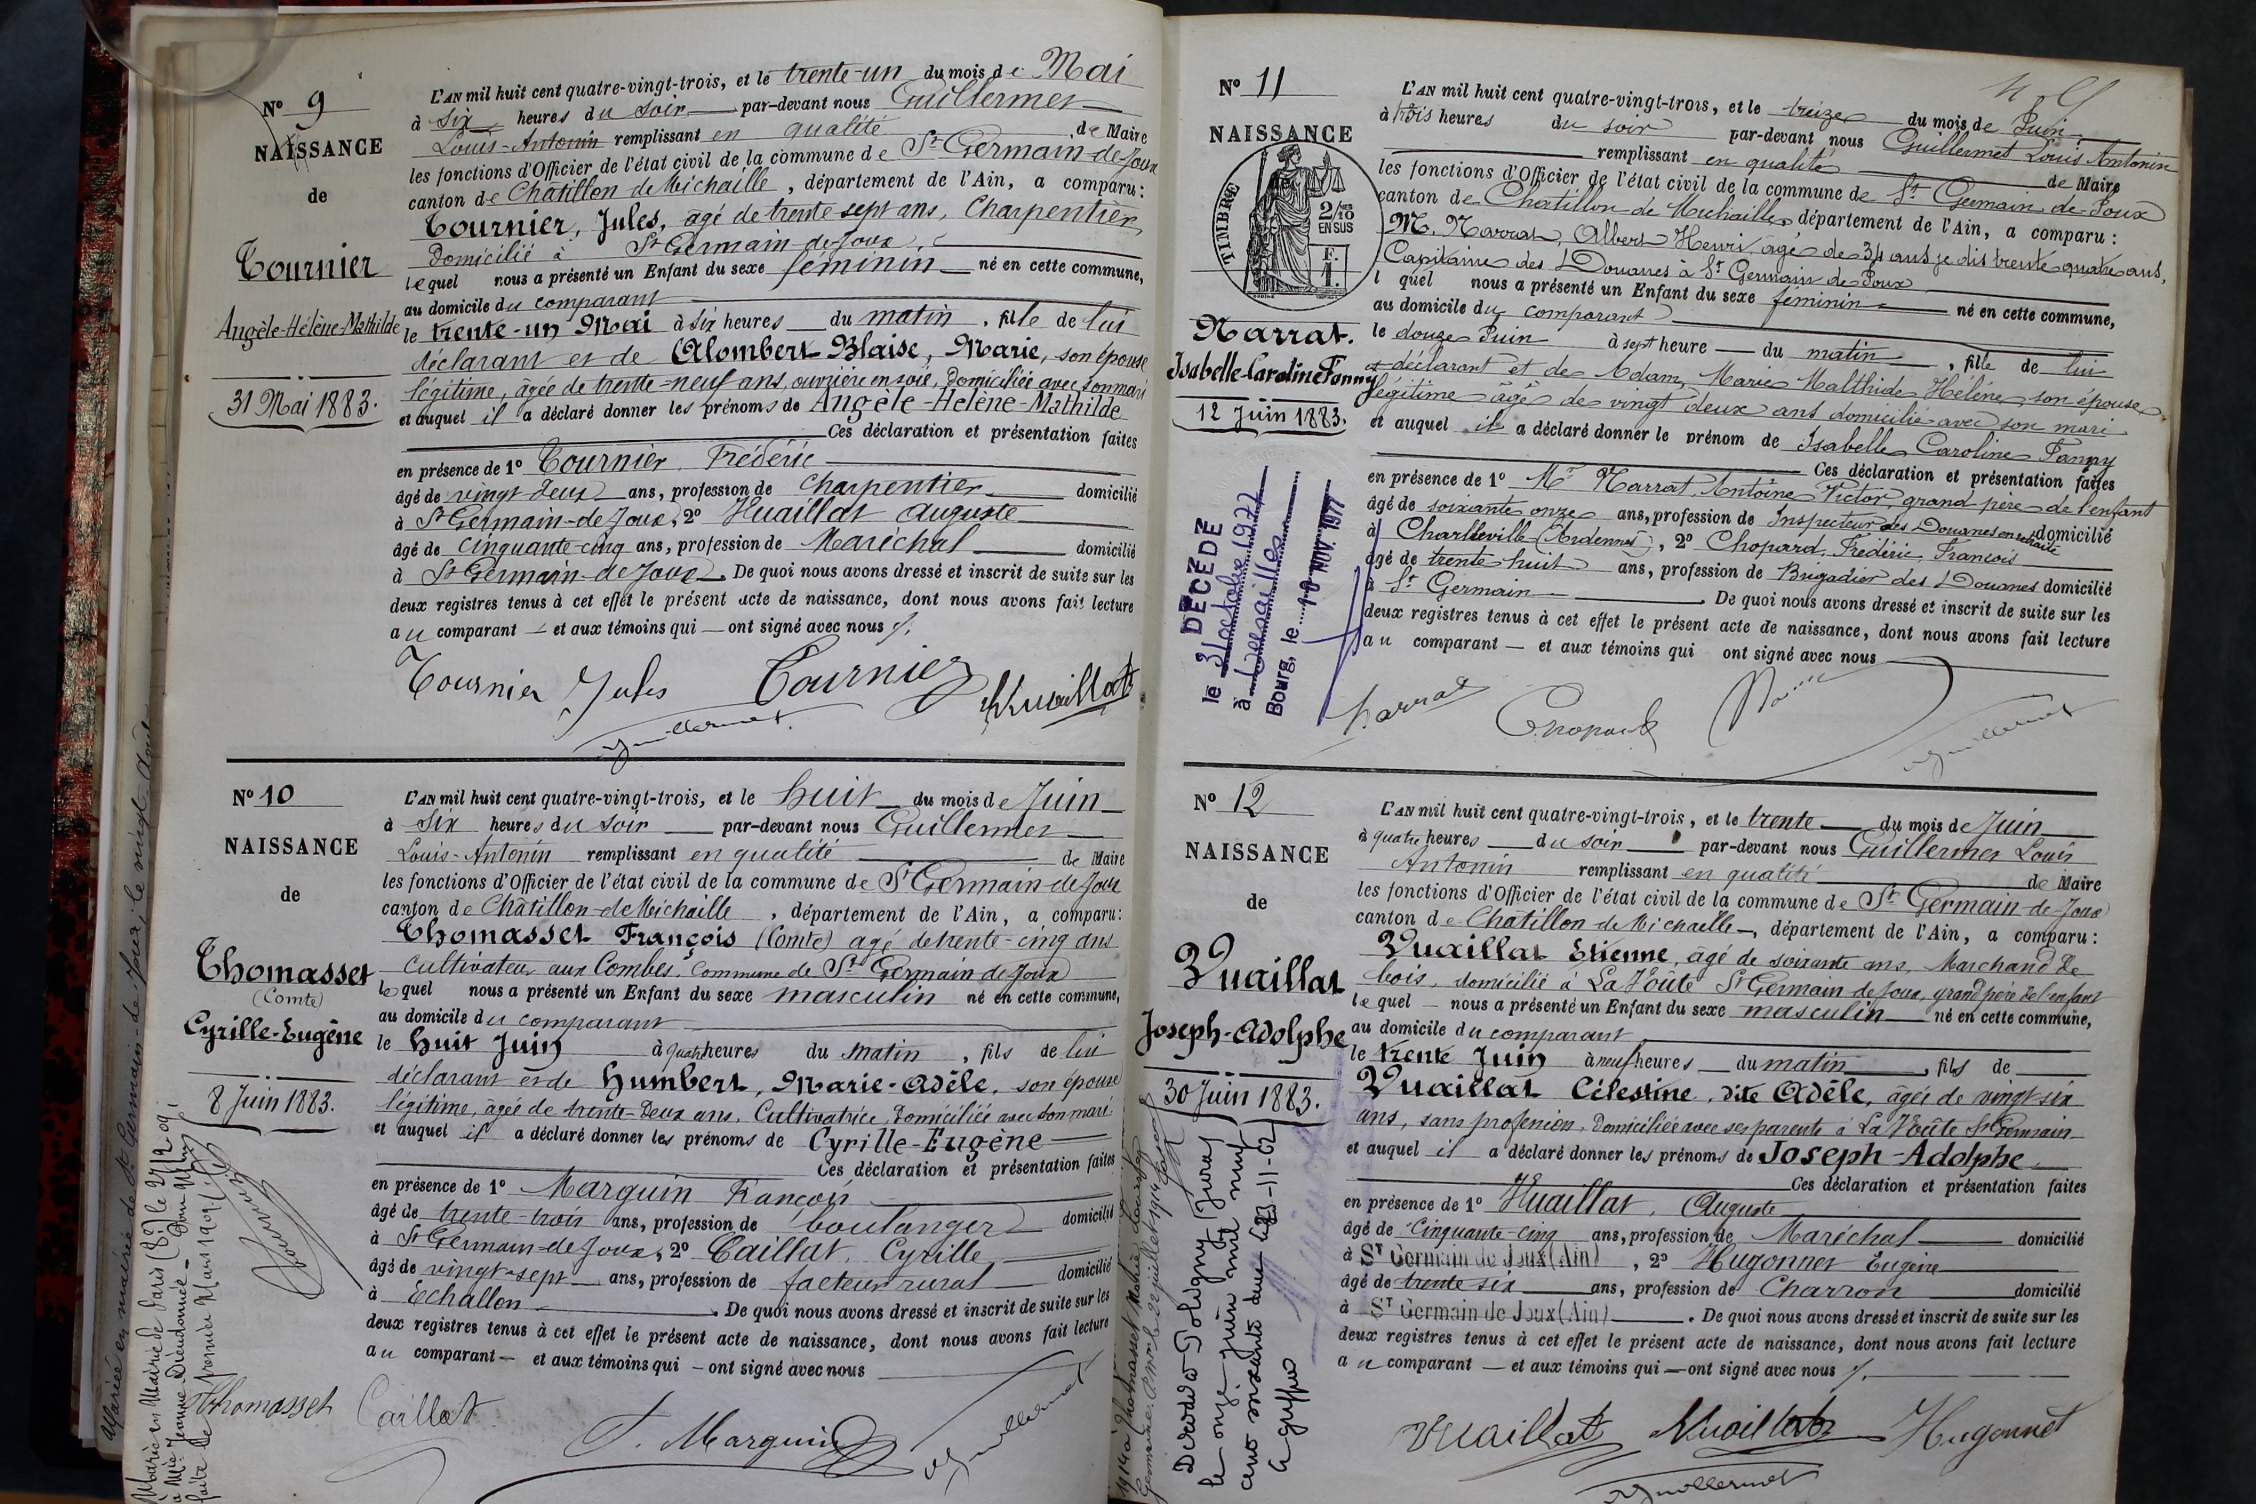 N° 9
NAISSANCE
de
Tournier
Angèle-Hélène-Mathilde
31 Mai 1883.
L'AN mil huit cent quatre-vingt-trois, et le trente-un du mois de Mai
à six heures du soir par-devant nous Guillermet
Louis-Antonin remplissant en qualité de Maire
les fonctions d'Officier de l'état civil de la commune de St Germain-de-Joux
canton de Châtillon de Michaille, département de l'Ain, a comparu:
Tournier, Jules, agé de trente sept ans, Charpentier,
Domicilié à St Germain-de-Joux,
lequel nous a présenté un Enfant du sexe féminin né en cette commune,
au domicile du comparant
le trente-un Mai à six heures du matin, fille de lui
déclarant et de Alombert-Blaise, Marie, son épouse
légitime, âgée de trente-neuf ans, ouvrière en soie, Domiciliée avec son mari
et auquel il a déclaré donner les prénoms de Angèle-Hélène-Mathilde
Ces déclaration et présentation faites
en présence de 1° Tournier Frédéric
âgé de vingt-deux ans, profession de Charpentier domicilié
à St Germain-de-Joux, 2° Vuaillat Auguste
âgé de cinquante-cinq ans, profession de Maréchal domicilié
à St Germain-de-Joux. De quoi nous avons dressé et inscrit de suite sur les
deux registres tenus à cet effet le présent acte de naissance, dont nous avons fait lecture
au comparant et aux témoins qui ont signé avec nous
Tournier Jules Tournier Vuaillat
Guillermet
N° 10
NAISSANCE
de
Thomasset
(Comte)
Cyrille-Eugène
8 Juin 1883.
L'AN mil huit cent quatre-vingt-trois, et le huit du mois de Juin
à six heures du soir par-devant nous Guillermet
Louis-Antonin remplissant en qualité de Maire
les fonctions d'Officier de l'état civil de la commune de St Germain-de-Joux
canton de Châtillon-de-Michaille, département de l'Ain, a comparu:
Thomasset François (Comte) agé de trente-cinq ans
cultivateur aux Combes, Commune de St Germain de Joux
lequel nous a présenté un Enfant du sexe masculin né en cette commune,
au domicile du comparant
le huit Juin à quatre heures du matin, fils de lui
déclarant et de Humbert, Marie-Adèle, son épouse
légitime, âgée de trente-deux ans, Cultivatrice, Domiciliée avec son mari
et auquel il a déclaré donner les prénoms de Cyrille-Eugène
Ces déclaration et présentation faites
en présence de 1° Marquin François
âgé de trente-trois ans, profession de boulanger domicilié
à St Germain-de-Joux, 2° Caillat Cyrille
âgé de vingt-sept ans, profession de facteur rural domicilié
à Echallon. De quoi nous avons dressé et inscrit de suite sur les
deux registres tenus à cet effet le présent acte de naissance, dont nous avons fait lecture
au comparant et aux témoins qui ont signé avec nous
Thomasset Caillat F. Marquin Guillermet
Mariée en mairie de St Germain-de-Joux, le vingt Août
Marié en Mairie de Paris (8e) le 27/2 09
à Mlle Jeanne Dieudonnée
faite le premier Mars 1909
N° 11
NAISSANCE
de
TIMBRE
2/10
EN SUS
F.
1.
Narrat.
Isabelle-Caroline Fanny
12 Juin 1883.
DÉCÉDÉ
le 31 octobre 1977
à Versailles
Bourg, le 10 NOV. 1977
L'AN mil huit cent quatre-vingt-trois, et le treize du mois de Juin
à trois heures du soir par-devant nous Guillermet Louis Antonin
remplissant en qualité de Maire
les fonctions d'Officier de l'état civil de la commune de St Germain-de-Joux
canton de Châtillon de Michaille, département de l'Ain, a comparu:
M. Narrat, Albert Henri agé de 34 ans je dis trente quatre ans,
Capitaine des Douanes à St Germain de Joux
lquel nous a présenté un Enfant du sexe féminin né en cette commune,
au domicile du comparant
le douze Juin à sept heure du matin, fille de lui
déclarant et de Adam, Marie Malthide Hélène son épouse
légitime âgé de vingt deux ans domicilié avec son mari
et auquel il a déclaré donner le prénom de Isabelle Caroline Fanny
Ces déclaration et présentation faites
en présence de 1° Mr Narrat, Antoine Victor, grand père de l'enfant
âgé de soixante onze ans, profession de Inspecteur des Douanes en retraite domicilié
à Charleville (Ardennes), 2° Chopard, Frédéric François
âgé de trente huit ans, profession de Brigadier des Douanes domicilié
à St Germain. De quoi nous avons dressé et inscrit de suite sur les
deux registres tenus à cet effet le présent acte de naissance, dont nous avons fait lecture
au comparant et aux témoins qui ont signé avec nous
Narrat Chopard Guillermet
N° 12
NAISSANCE
de
Vuaillat
Joseph-Adolphe
30 Juin 1883.
Décédé à Poligny (Jura)
le onze juin mil neuf
cent soixante deux 11-62
le greffier
L'AN mil huit cent quatre-vingt-trois, et le trente du mois de Juin
à quatre heures du soir par-devant nous Guillermet Louis
Antonin remplissant en qualité de Maire
les fonctions d'Officier de l'état civil de la commune de St Germain-de-Joux
canton de Châtillon de Michaille, département de l'Ain, a comparu:
Vuaillat Etienne, âgé de soixante ans, Marchand de
bois, domicilié à La Voûte St Germain de Joux, grand père de l'enfant
lequel nous a présenté un Enfant du sexe masculin né en cette commune,
au domicile du comparant
le trente Juin à neuf heures du matin, fils de
Vuaillat Célestine, dite Adèle, âgée de vingt-six
ans, sans profession, Domiciliée avec ses parents à La Voûte St Germain
et auquel il a déclaré donner les prénoms de Joseph-Adolphe
Ces déclaration et présentation faites
en présence de 1° Vuaillat Auguste
âgé de Cinquante cinq ans, profession de Maréchal domicilié
à ST Germain de Joux (Ain), 2° Hugonnet Eugène
âgé de trente six ans, profession de Charron domicilié
à ST Germain de Joux (Ain). De quoi nous avons dressé et inscrit de suite sur les
deux registres tenus à cet effet le présent acte de naissance, dont nous avons fait lecture
au comparant et aux témoins qui ont signé avec nous
Vuaillat Vuaillat Hugonnet
Guillermet